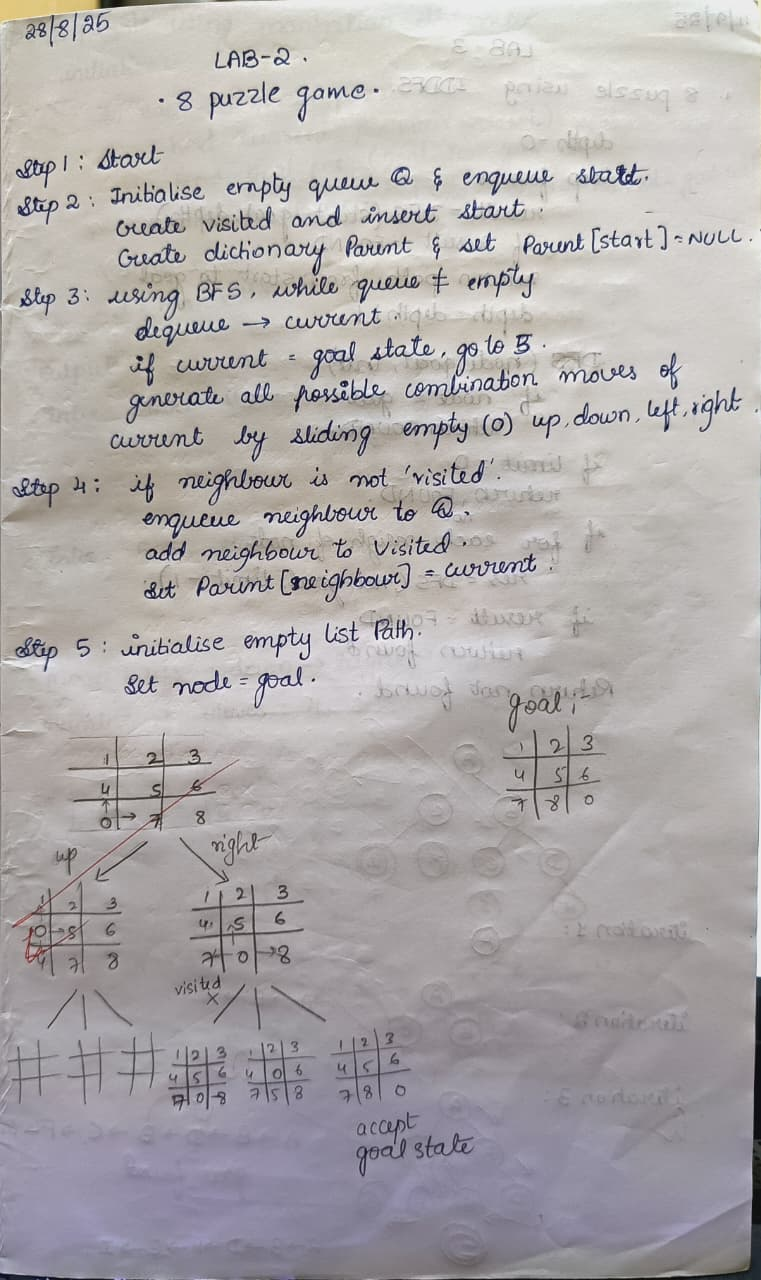 28/8/25
LAB-2.
· 8 puzzle game.
Step 1: Start
Step 2: Initialise empty queue Q & enqueue start.
Create visited and insert start.
Create dictionary Parent & set Parent[start]=NULL.
Step 3: using BFS, while queue ≠ empty
dequeue → current.
if current = goal state, go to 5.
generate all possible combination moves of
current by sliding empty (0) up, down, left, right.
Step 4: if neighbour is not 'visited'.
enqueue neighbour to Q.
add neighbour to Visited.
Set Parent[neighbour] = current.
Step 5: initialise empty list Path.
Set node = goal.
goal:-
1 2 3
4 5 6
7 8 0
1 2 3
4 5 6
0 → 7 8
up
right
1 2 3
0 → 5 6
4 7 8
1 2 3
4 5 6
7 0 → 8
visited
×
1 2 3
4 5 6
7 0 8
1 2 3
4 0 6
7 5 8
1 2 3
4 5 6
7 8 0
accept
goal state